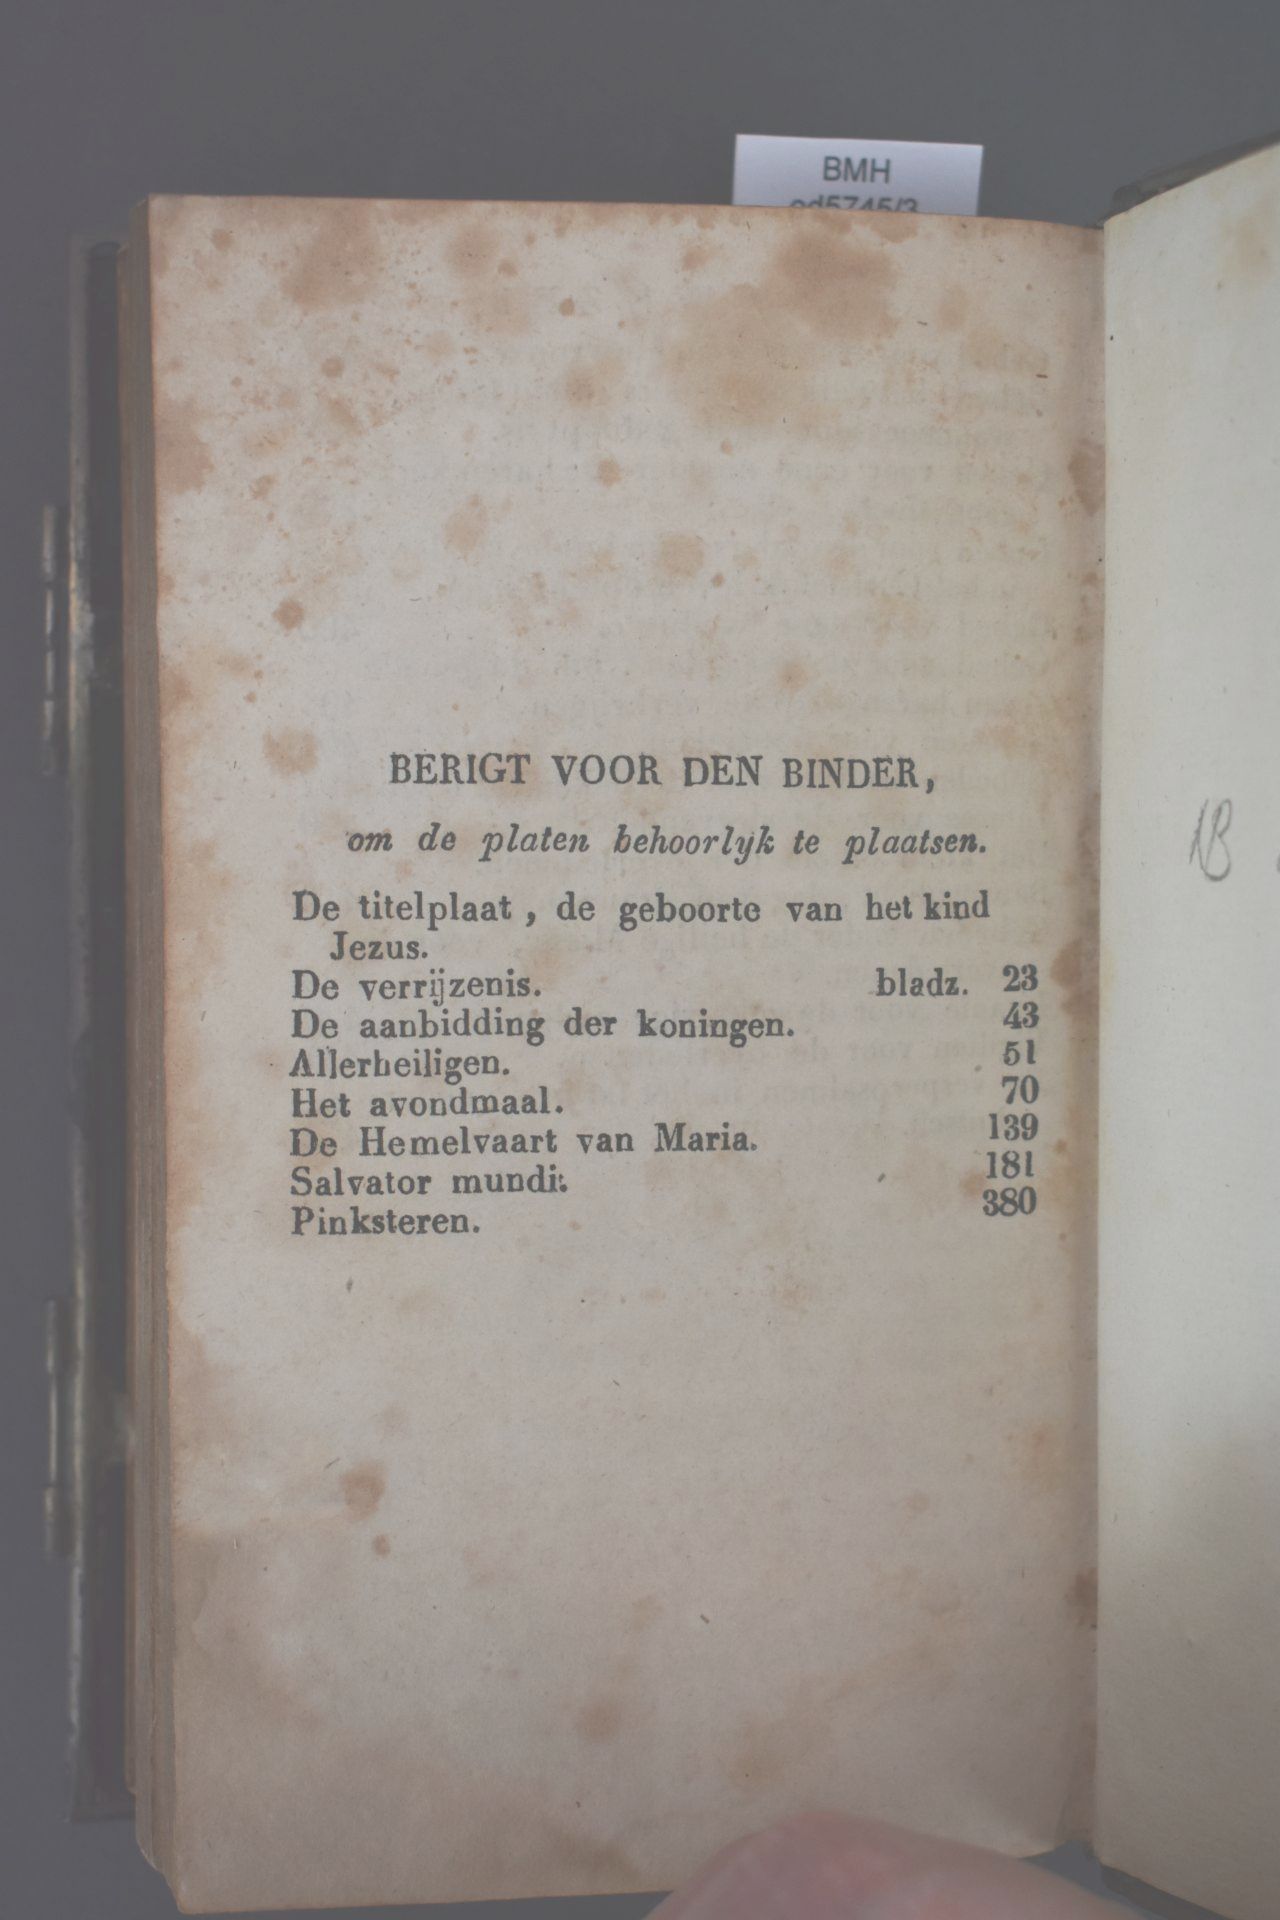 BMH
od5745/3
BERIGT VOOR DEN BINDER,
om de platen behoorlyk te plaatsen.
De titelplaat, de geboorte van het kind
Jezus.
De verrijzenis. bladz. 23
De aanbidding der koningen. 43
Allerheiligen. 51
Het avondmaal. 70
De Hemelvaart van Maria. 139
Salvator mundi. 181
Pinksteren. 380
NB